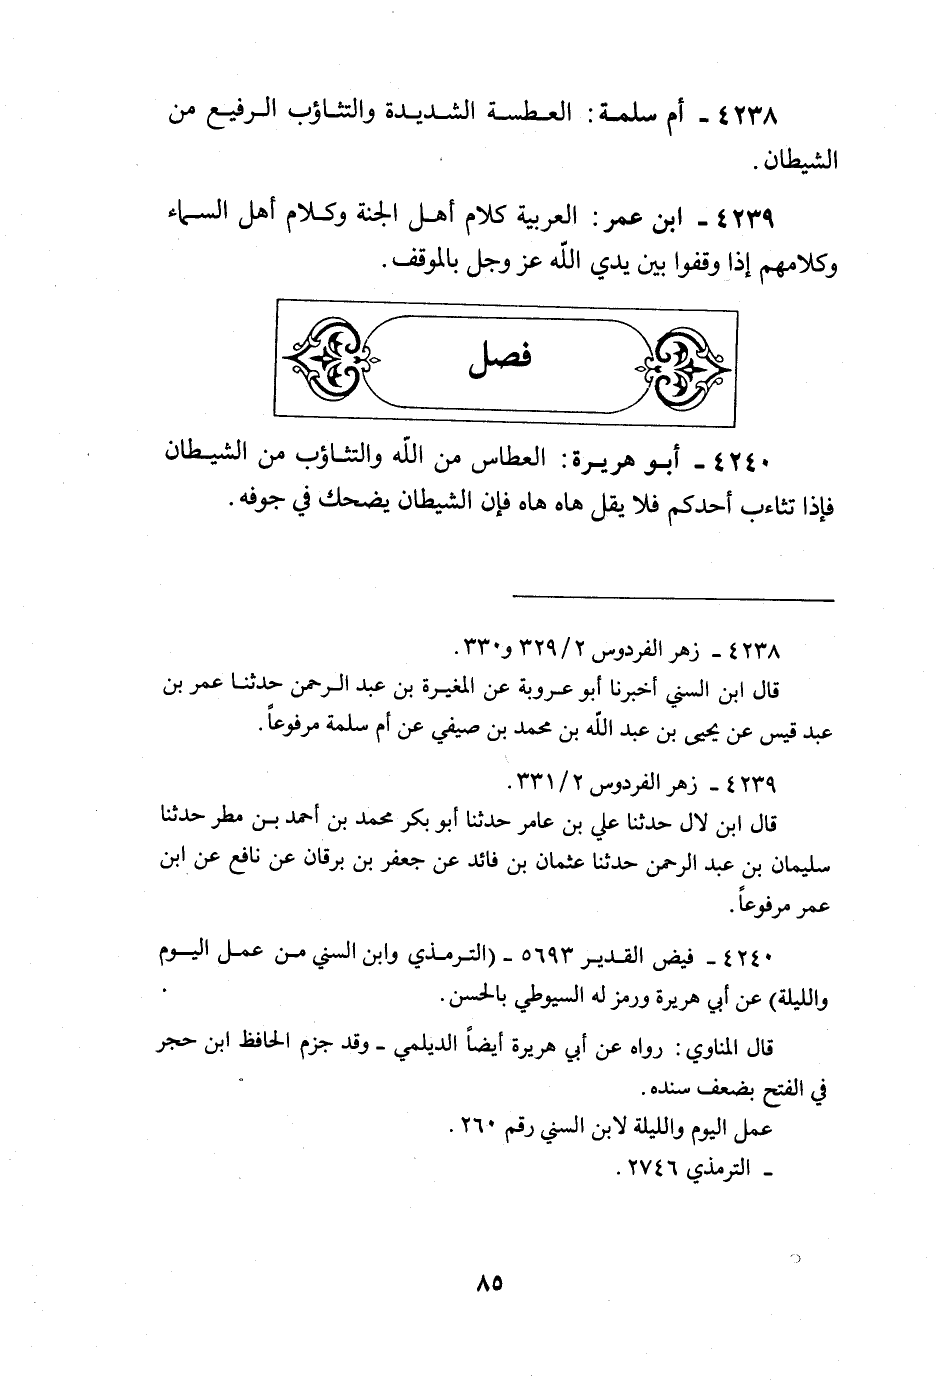 ٤٢٣٨ ـ أم سلمة: العطسة الشديدة والتثاؤب الرفيع من
الشيطان.
٤٢٣٩ ـ ابن عمر: العربية كلام أهل الجنة وكلام أهل السماء
وكلامهم إذا وقفوا بين يدي الله عز وجل بالموقف.
فصل
٤٢٤٠ ـ أبو هريرة: العطاس من الله والتثاؤب من الشيطان
فإذا تثاءب أحدكم فلا يقل هاه هاه فإن الشيطان يضحك في جوفه.
٤٢٣٨ ـ زهر الفردوس ٣٢٩/٢ و٣٣٠.
قال ابن السني أخبرنا أبو عروبة عن المغيرة بن عبد الرحمن حدثنا عمر بن
عبد قيس عن يحيى بن عبد الله بن محمد بن صيفي عن أم سلمة مرفوعاً.
٤٢٣٩ ـ زهر الفردوس ٣٣١/٢.
قال ابن لال حدثنا علي بن عامر حدثنا أبو بكر محمد بن أحمد بن مطر حدثنا
سليمان بن عبد الرحمن حدثنا عثمان بن فائد عن جعفر بن برقان عن نافع عن ابن
عمر مرفوعاً.
٤٢٤٠ ـ فيض القدير ٥٦٩٣ ـ (الترمذي وابن السني من عمل اليوم
والليلة) عن أبي هريرة ورمز له السيوطي بالحسن.
قال المناوي: رواه عن أبي هريرة أيضاً الديلمي ـ وقد جزم الحافظ ابن حجر
في الفتح بضعف سنده.
عمل اليوم والليلة لابن السني رقم ٢٦٠.
ـ الترمذي ٢٧٤٦.
٨٥